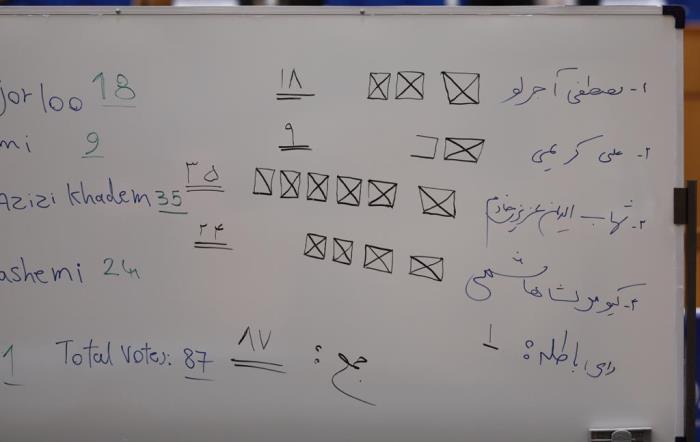 jorloo 18 ۱۸ ۱- مصطفی آجرلو
mi 9 ۹ ۲- علی کریمی
Azizi Khadem 35 ۳۵ ۳- شهاب الدین عزیزی خادم
ashemi 24 ۲۴ ۴- کیومرث هاشمی
رای باطله: ۱
1 Total Votes: 87 ۸۷ جمع: